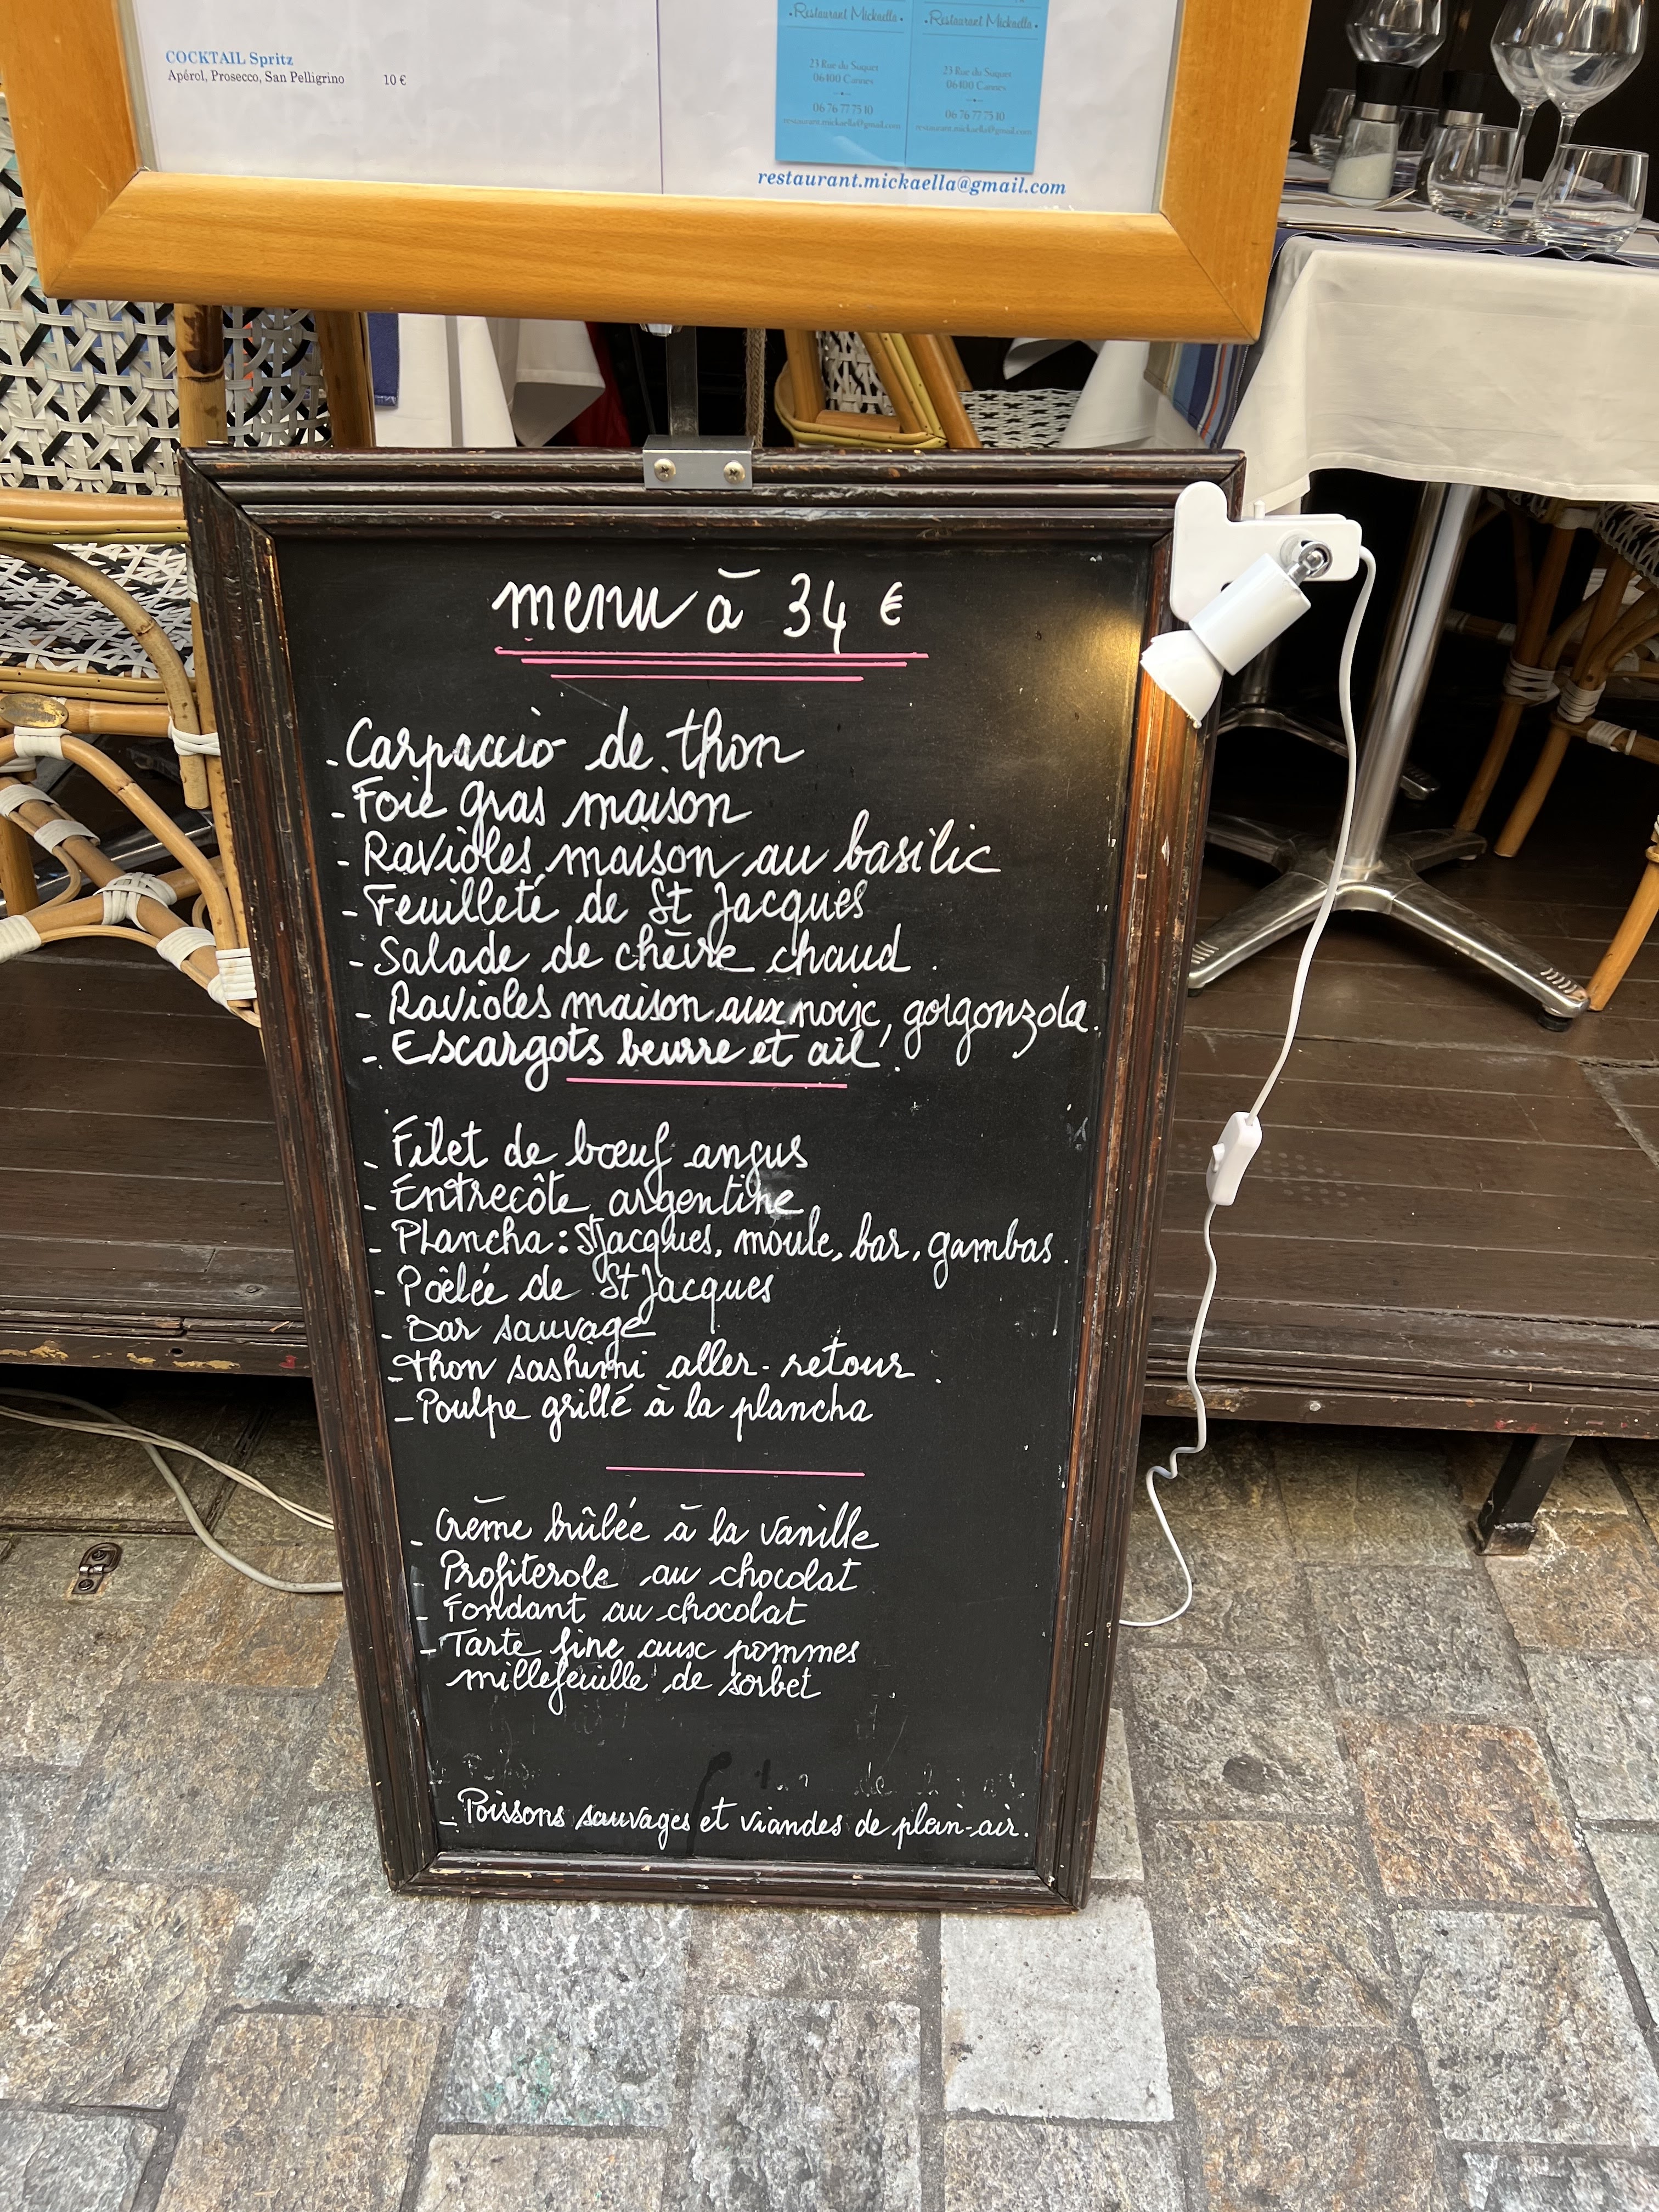 COCKTAIL Spritz
Apérol, Prosecco, San Pelligrino 10 €
• Restaurant Mickaella •
23 Rue du Suquet
06400 Cannes
06 76 77 75 10
restaurant.mickaella@gmail.com
• Restaurant Mickaella •
23 Rue du Suquet
06400 Cannes
06 76 77 75 10
restaurant.mickaella@gmail.com
restaurant.mickaella@gmail.com
menu à 34 €
- Carpaccio de thon
- Foie gras maison
- Ravioles maison au basilic
- Feuilleté de St Jacques
- Salade de chèvre chaud.
- Ravioles maison aux noix, gorgonzola.
- Escargots beurre et ail.
- Filet de bœuf angus
- Entrecôte argentine
- Plancha : St Jacques, moule, bar, gambas.
- Poêlée de St Jacques
- Bar sauvage
- thon sashimi aller-retour.
- Poulpe grillé à la plancha
- Crème brûlée à la vanille
- Profiterole au chocolat
- Fondant au chocolat
- Tarte fine aux pommes
millefeuille de sorbet
- Poissons sauvages et viandes de plein-air.